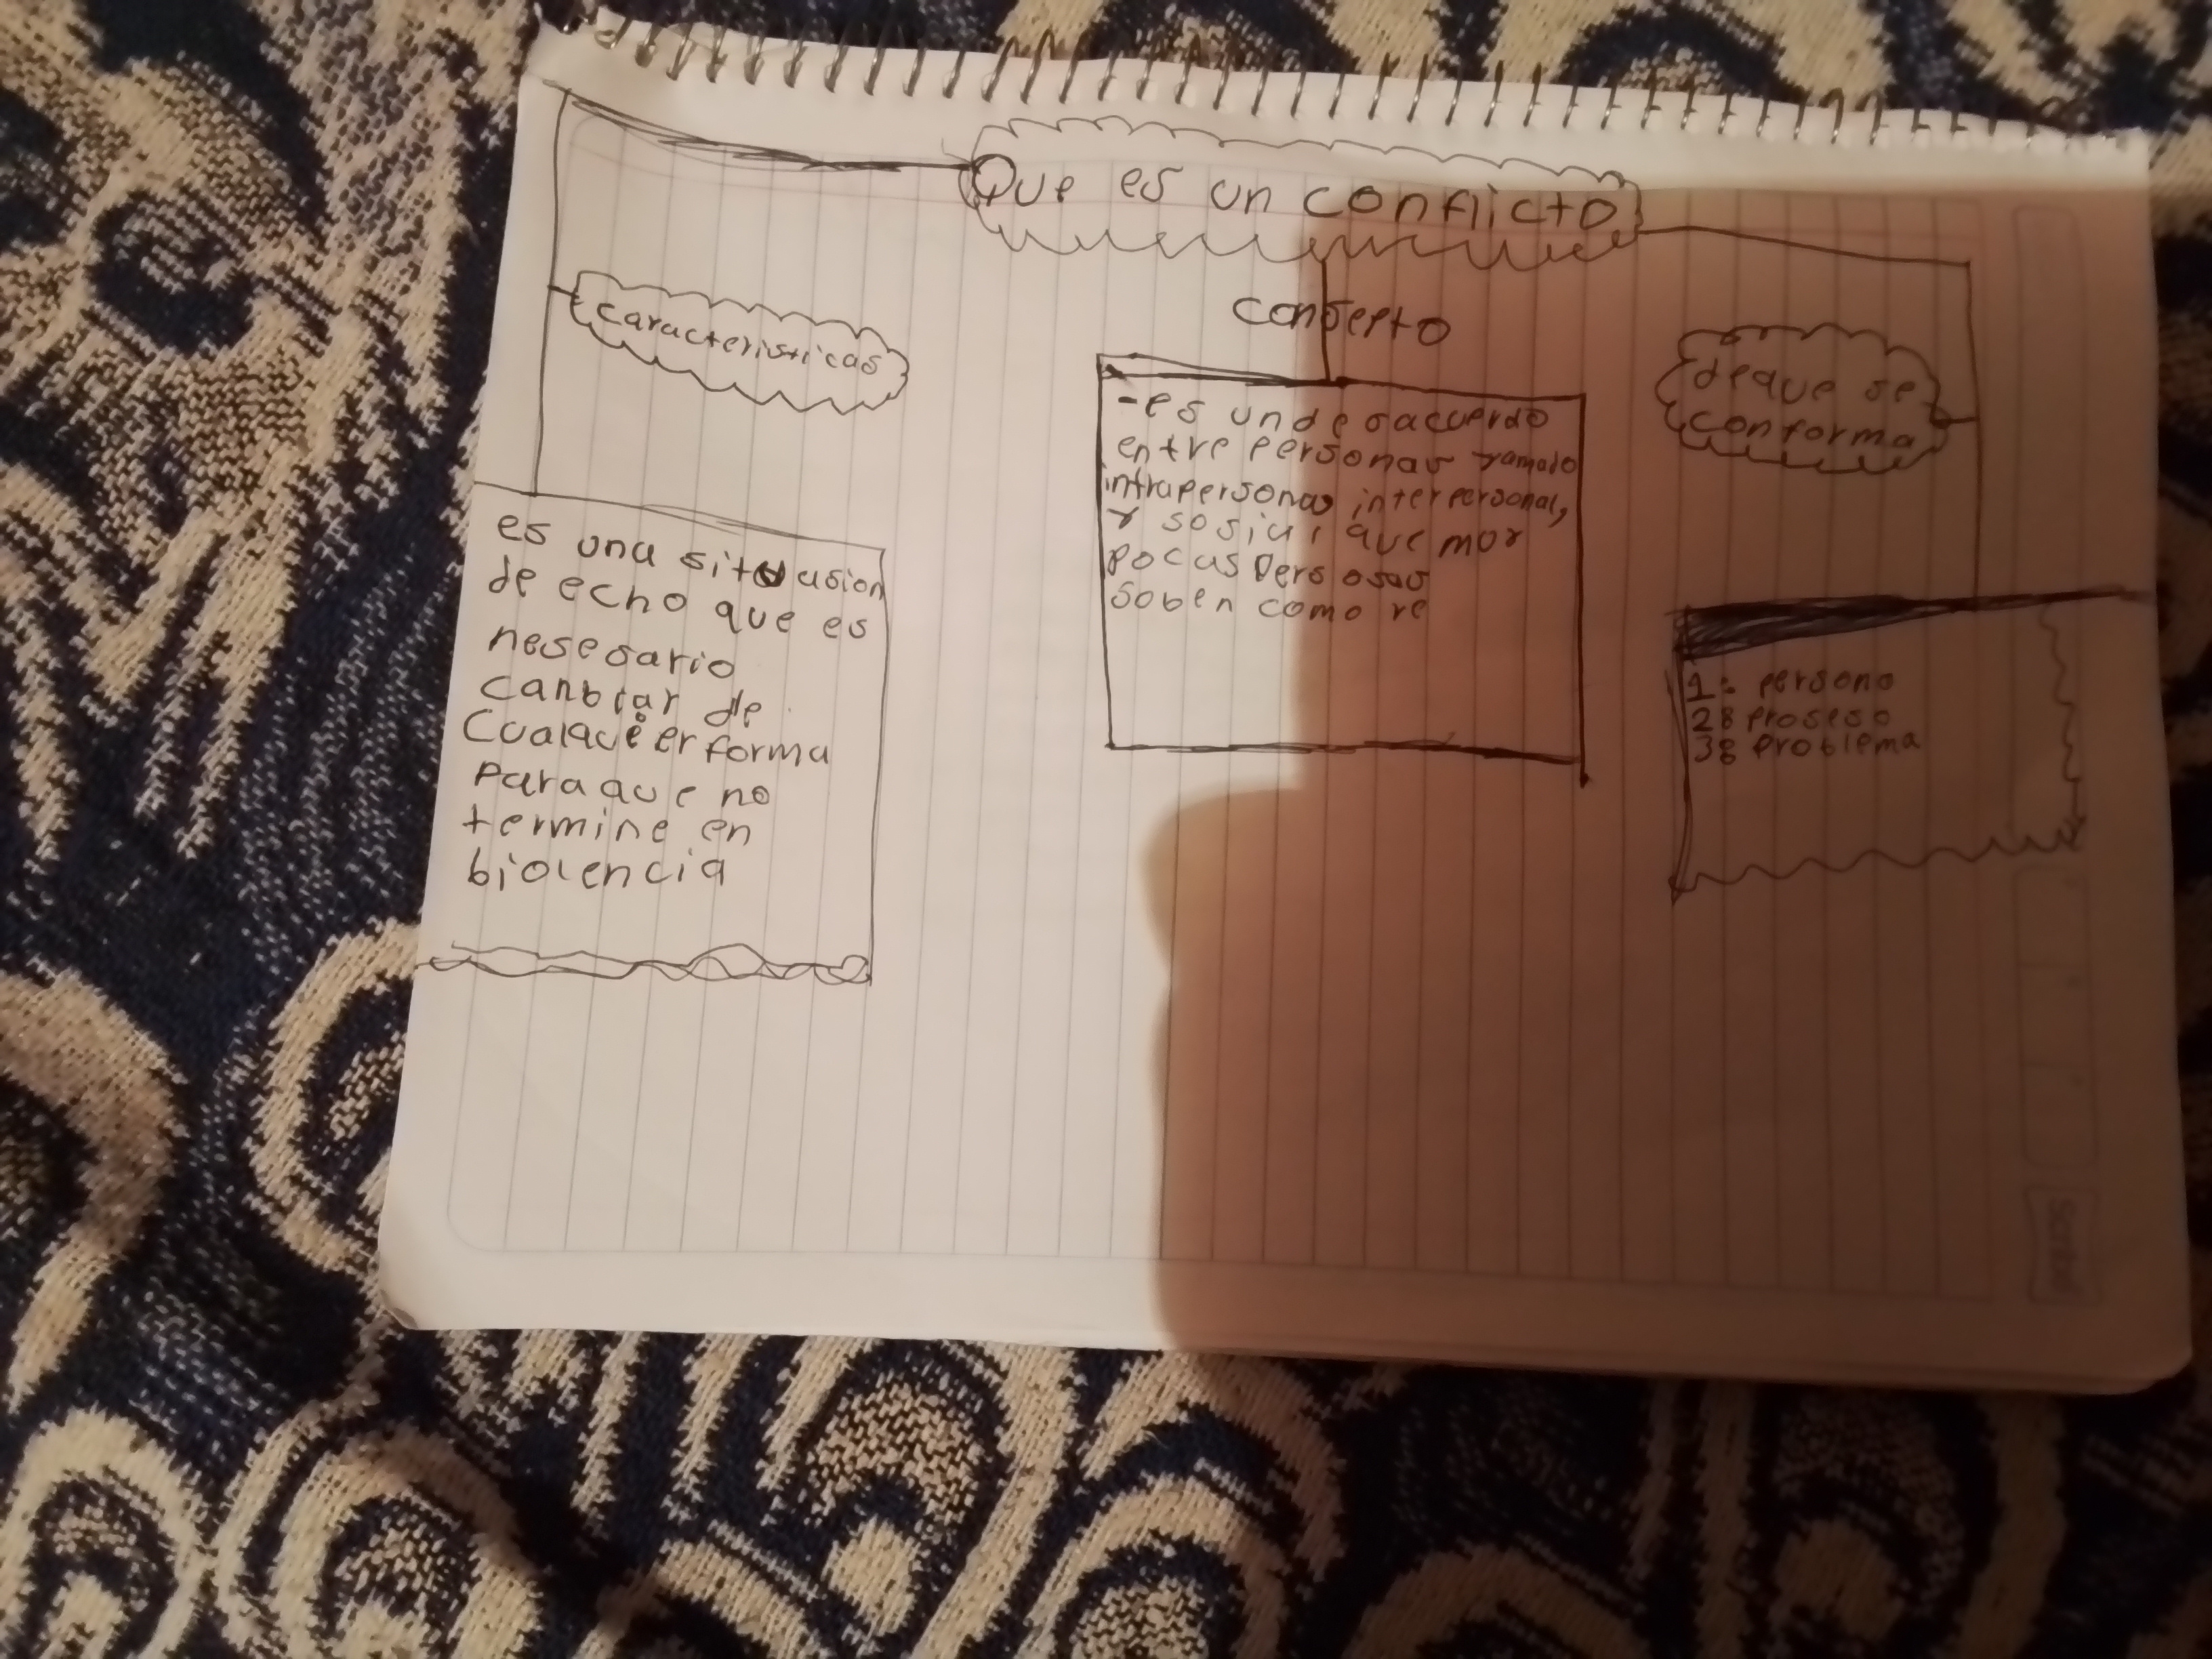 Que es un conflicto
caracteristicas
es una situasion
de echo que es
nesesario
canbiar de
Cualquier forma
Para que no
termine en
biolencia
conserto
-es un desacuerdo
entre personas yamado
intrapersonas interpersonal,
y sosial que moy
pocas persosas
saben como re
deque se
conforma
1: persona
2: proseso
3: problema
Scribe